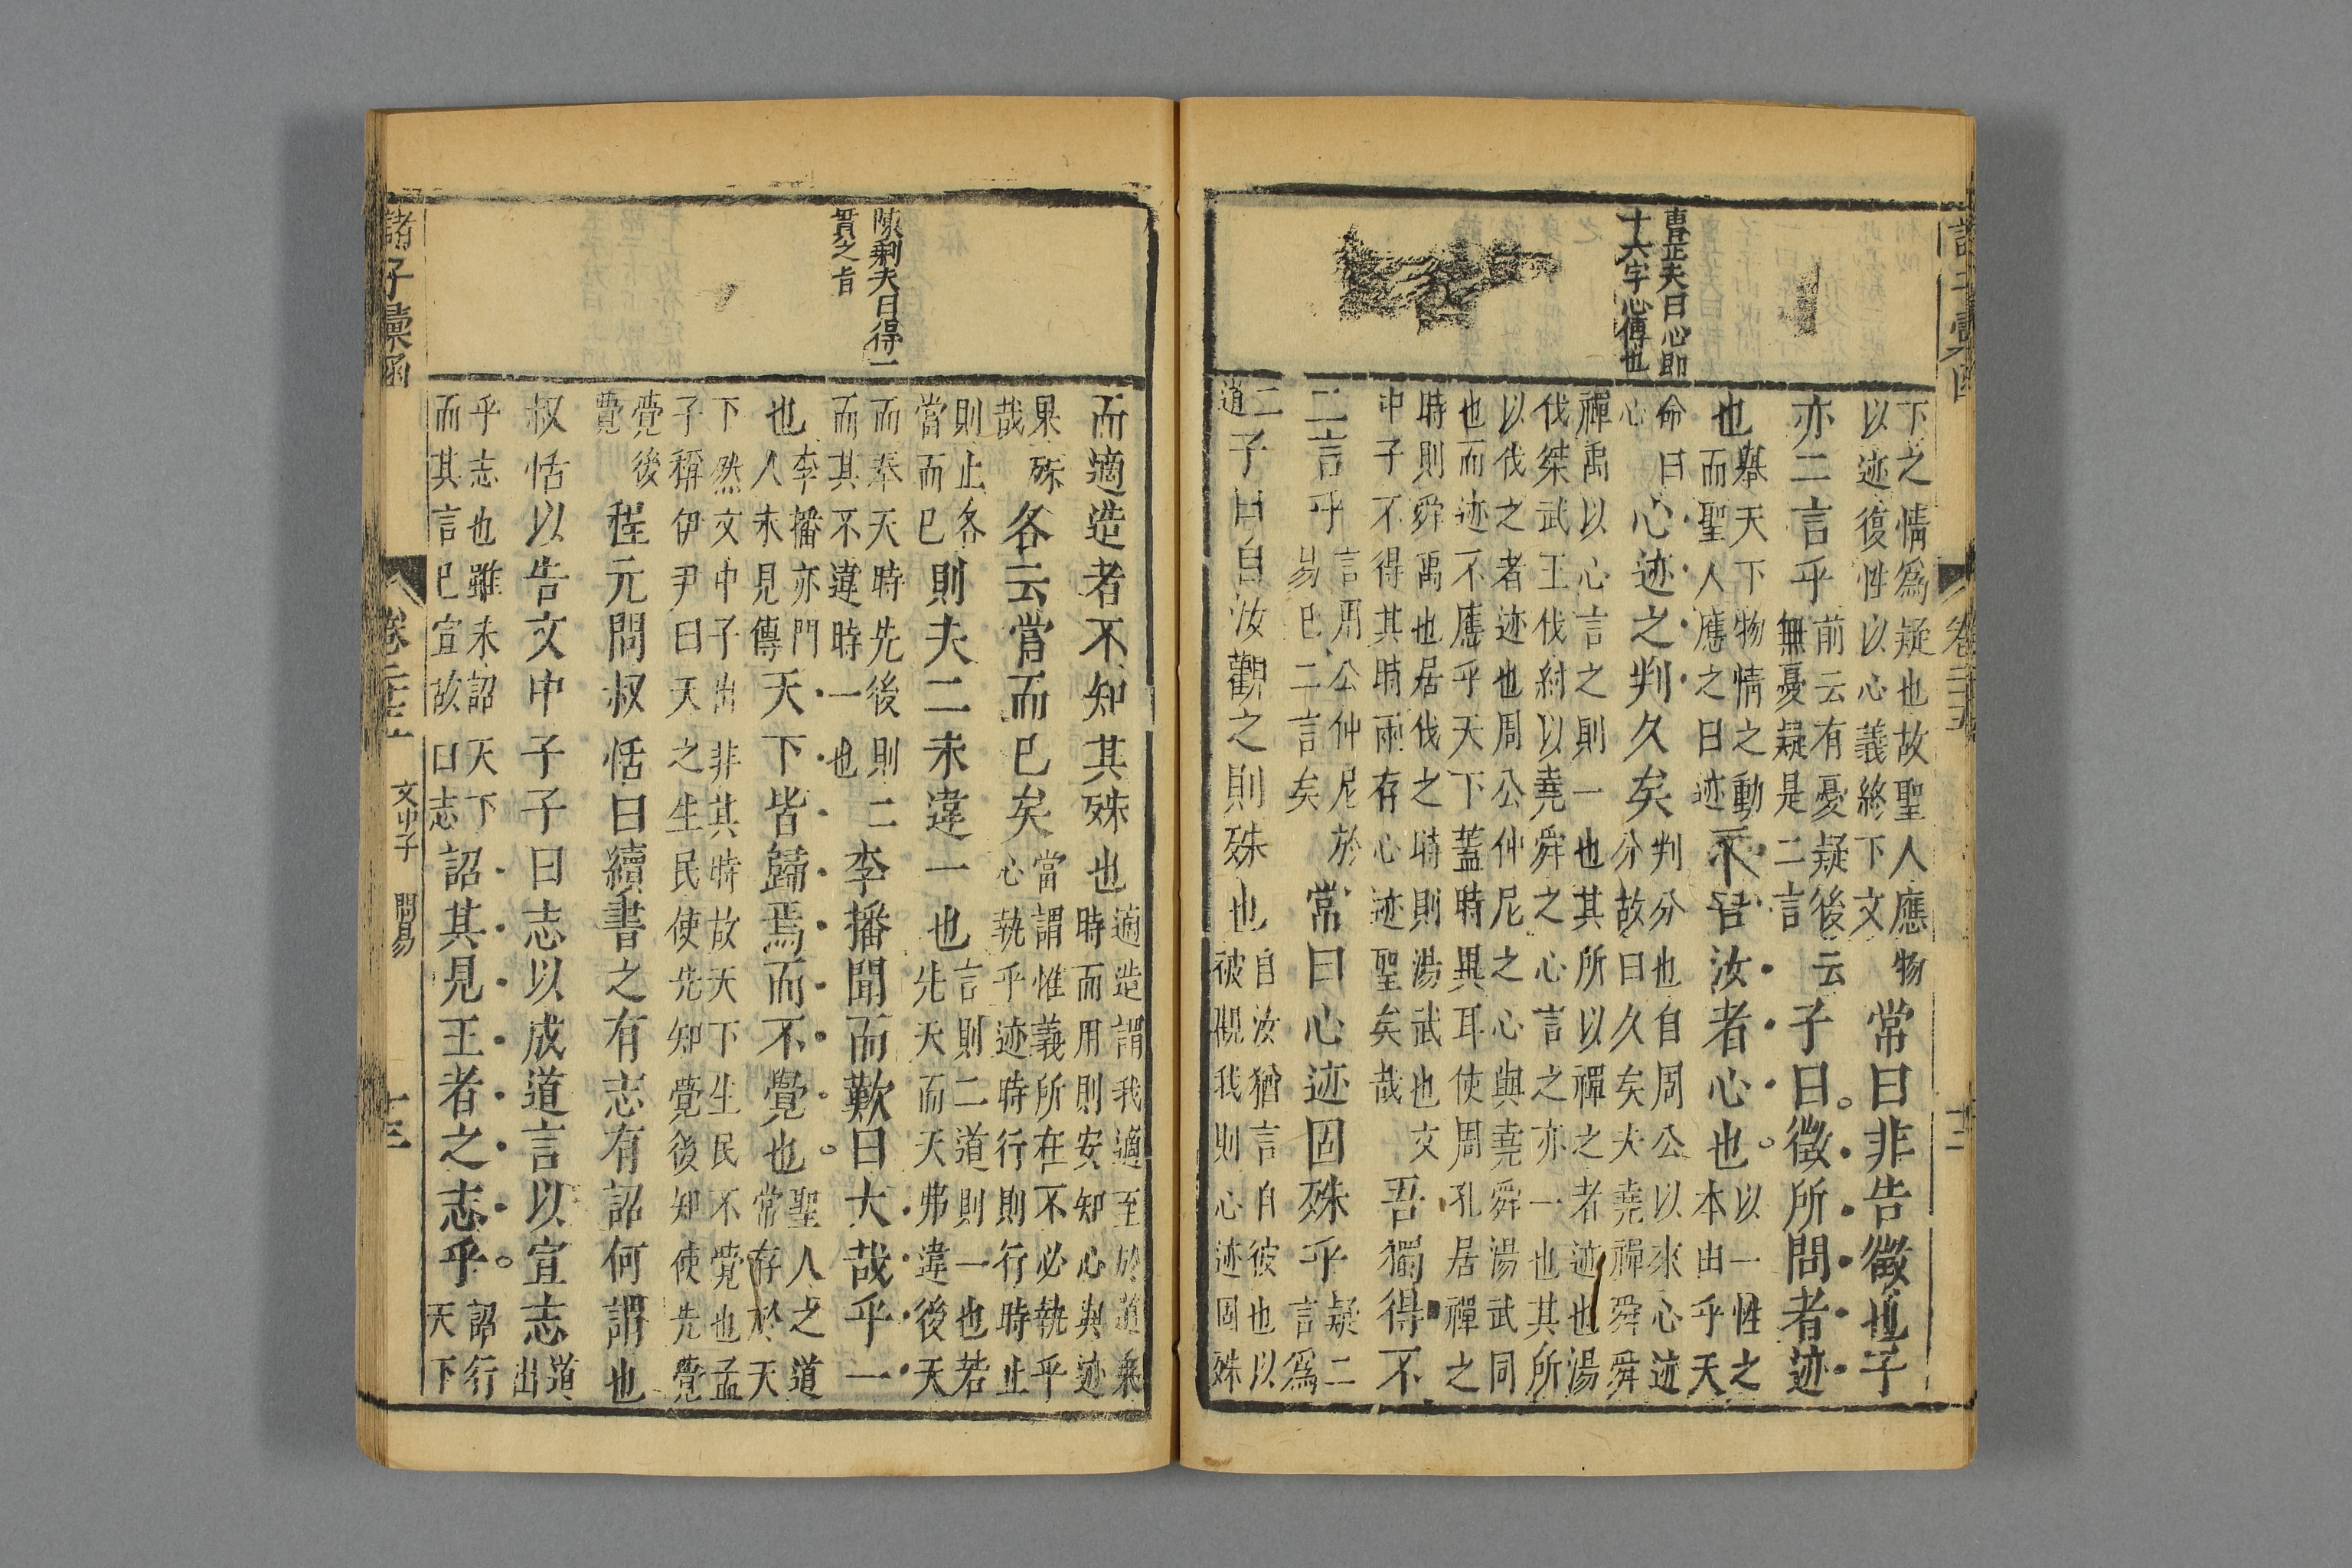 曹正夫曰心即
十六字心傳也
下之情爲疑也故聖人應物
以迹復性以心義終下文
常曰非告徵也子
亦二言乎
前云有憂疑後云
無憂疑是二言
子曰徵所問者迹
也
舉天下物情之動
而聖人應之曰迹
吾告汝者心也
以一性之
本由乎天
命曰
心
心迹之判久矣
判分也自周公以來心迹
分故曰久矣夫堯禪舜舜
禪禹以心言之則一也其所以禪之者迹也湯
伐桀武王伐紂以堯舜之心言之亦一也其所
以伐之者迹也周公仲尼之心與堯舜湯武同
也而迹不應乎天下蓋時異耳使周孔居禪之
時則舜禹也居伐之時則湯武也文
中子不得其時而存心迹聖矣哉
吾獨得不
二言乎
言周公仲尼於
易已二言矣
常曰心迹固殊乎
疑二
言爲
二
道
子曰自汝觀之則殊也
自汝猶言自彼也以
彼觀我則心迹固殊
陳剩夫曰得一
貫之旨
而適造者不知其殊也
適造謂我適至於道矣
時而用則安知心與迹
果殊
哉
各云當而已矣
當謂惟義所在不必執乎
心執乎迹時行則行時止
則止各
當而已
則夫二未違一也
言則二道則一也若
先天而天弗違後天
而奉天時先後則二
而其不違時一也
李播聞而歎曰大哉乎一
也
李播亦門
人未見傳
天下皆歸焉而不覺也
聖人之道
常存於天
下然文中子出非其時故天下生民不覺也孟
子稱伊尹曰天之生民使先知覺後知使先覺
覺後
覺
程元問叔恬曰續書之有志有詔何謂也
叔恬以告文中子子曰志以成道言以宣志
道
出
乎志也雖未詔天下
而其言已宣故曰志
詔其見王者之志乎
詔行
天下
諸子彙函
卷二十
文中子
問易
十三
十二